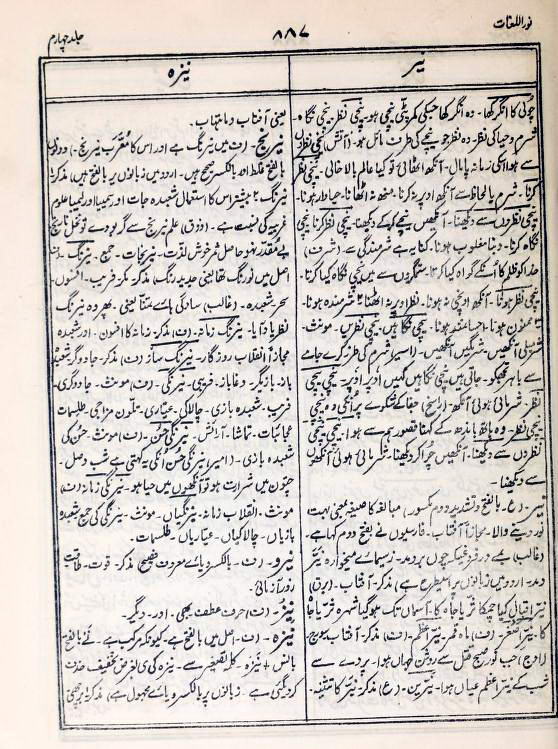 نور اللغات
۸۸۷
جلد چہارم
نیر
نیزہ
چولی کا انگرکھا۔ وہ انگرکھا جسکی کمر پٹی نیچی ہو۔ نیچی نظر۔ نیچی نگاہ۔
شرم وحیا کی نظر۔ وہ نظر جو نیچے کی طرف مائل ہو۔ (آتش) نیچی نظروں
سے ہوا اکی زمانہ پامال۔ آنکھ اٹھائی تو کیا عالم بالا خالی۔ نیچی نظر
کرنا۔ شرم یا لحاظ سے آنکھ اوپر نہ کرنا۔ منھ نہ اٹھانا۔ حیادار ہونا۔
نیچی نظروں سے دیکھنا۔ آنکھیں نیچے کر کے دیکھنا۔ نیچی نظر کرنا نیچی
نگاہ کرنا۔ دبنا مغلوب ہونا۔ کنایہ ہے شرمندگی سے (شرف)
نیچی نظر ہونا۔ آنکھ اونچی نہ ہونا۔ نظر اوپر نہ اٹھنا ۲ شرمندہ ہونا۔
۳ ممنون ہونا۔ احسانمند ہونا۔ نیچی نگاہیں۔ نیچی نظریں۔ مونث۔
شرمیلی آنکھیں۔ شرمگیں آنکھیں۔ (اسیر) شرم کی طرز کرے جامے
سے باہر تجھکو۔ جاتی ہیں نیچی نگاہیں کہیں اوپر اوپر۔ نیچی نیچی
نظر۔ شرمائی ہوئی آنکھ۔ (راسخ) جفا کے شکوے پر انکی وہ نیچی
نیچی نظر۔ وہ ہاتھ باندھ کے کہنا قصور ہم سے ہوا۔ نیچی نیچی
نظروں سے دیکھنا۔ آنکھیں چرا کر دیکھنا۔ شرمائی ہوئی آنکھوں
سے دیکھنا۔
نیر۔ (ع۔ بالفتح وتشدید دوم مکسور) مبالغہ کا صیغہ بمعنی بہت
نور دینے والا۔ مجازاً آفتاب۔ فارسیوں نے بفتح دوم کہا ہے۔
دمد۔ اردو میں زبانوں پر اسیطرح ہے) مذکر۔ آفتاب۔ (برق)
نیر اقبال کیا چمکا ثریا جاہ کا۔ آسماں تک ہو گیا شہرہ ثریا جاہ
کا۔ نیر اصغر۔ (ف) ماہ قمر۔ نیر اعظم۔ (ف) مذکر۔ آفتاب سورج
(اوج) جب نور صبح قتل سے روشن جہاں ہوا۔ پردے سے
شب کے نیر اعظم عیاں ہوا۔ نیرین۔ (ع) مذکر۔ نیر کا تثنیہ۔
یعنی آفتاب و ماہتاب۔
نیرنج۔ (ف میں نیرنگ ہے اور اس کا معرب نیرنج۔ دونوں
بالفتح غلط اور بالکسر صحیح ہیں۔ اردو میں زبانوں پر بالفتح ہیں) مذکر۔
نیرنگ ۲ بیشتر اس کا استعمال شعبدہ جات اور سیمیا اور ایمیا علوم
غریبہ کی نسبت ہے۔ (ذوق) علم نیرنج سے گر ہووے تو نخل نارنج
بے مقدر نہو حاصل ثمر خوش لذت۔ نیرنجات۔ جمع۔ نیرنگ۔ (ف
اصل میں نورنگ تھا یعنی جدید رنگ) مذکر۔ مکر۔ فریب۔ افسوں۔
سحر۔ شعبدہ۔ (غالب) سادگی ہائے تمنا یعنی۔ پھر وہ نیرنگ
نظر یاد آیا۔ نیرنگ زمانہ۔ (ف) مذکر۔ زمانہ کا افسون۔ اور شعبدہ
مجازاً انقلاب روزگار۔ نیرنگ ساز (ف) مذکر۔ جادوگر۔ شعبدہ
باز۔ بازیگر۔ دغاباز۔ فریبی۔ نیرنگی۔ (ف) مونث۔ جادوگری۔
فریب۔ شعبدہ بازی۔ چالاکی۔ عیاری۔ متلون مزاجی۔ طلسمات
عجائبات۔ تماشا۔ آرائش۔ نیرنگی حسن۔ (ف) مونث۔ حسن کی
شعبدہ بازی۔ (امیر) نیرنگی حسن انکی یہ کہتی ہے شب وصل۔
چتون میں شرارت ہو تو آنکھوں میں حیا ہو۔ نیرنگی زمانہ (ف)
مونث۔ انقلاب زمانہ۔ نیرنگیاں۔ مونث۔ نیرنگی کی جمع شعبدہ
بازیاں۔ چالاکیاں۔ عیاریاں۔ طلسمات۔
نیرو۔ (ف۔ بالکسر و یائے معروف فصیح) مذکر۔ قوت۔ طاقت
زور آزمائی۔
نیز۔ (ف) حرف عطف بھی۔ اور۔ دیگر۔
نیزہ۔ (ف۔ اصل میں بالفتح ہے۔ کیونکہ مرکب ہے۔ نے بالفتح
بانس + یزہ۔ کلمۂ تصغیر سے۔ نیزہ کی ی بغرض تخفیف حذف
کر دیگئی ہے۔ زبانوں پر بالکسر و یائے مجہول ہے) مذکر۔ برچھی